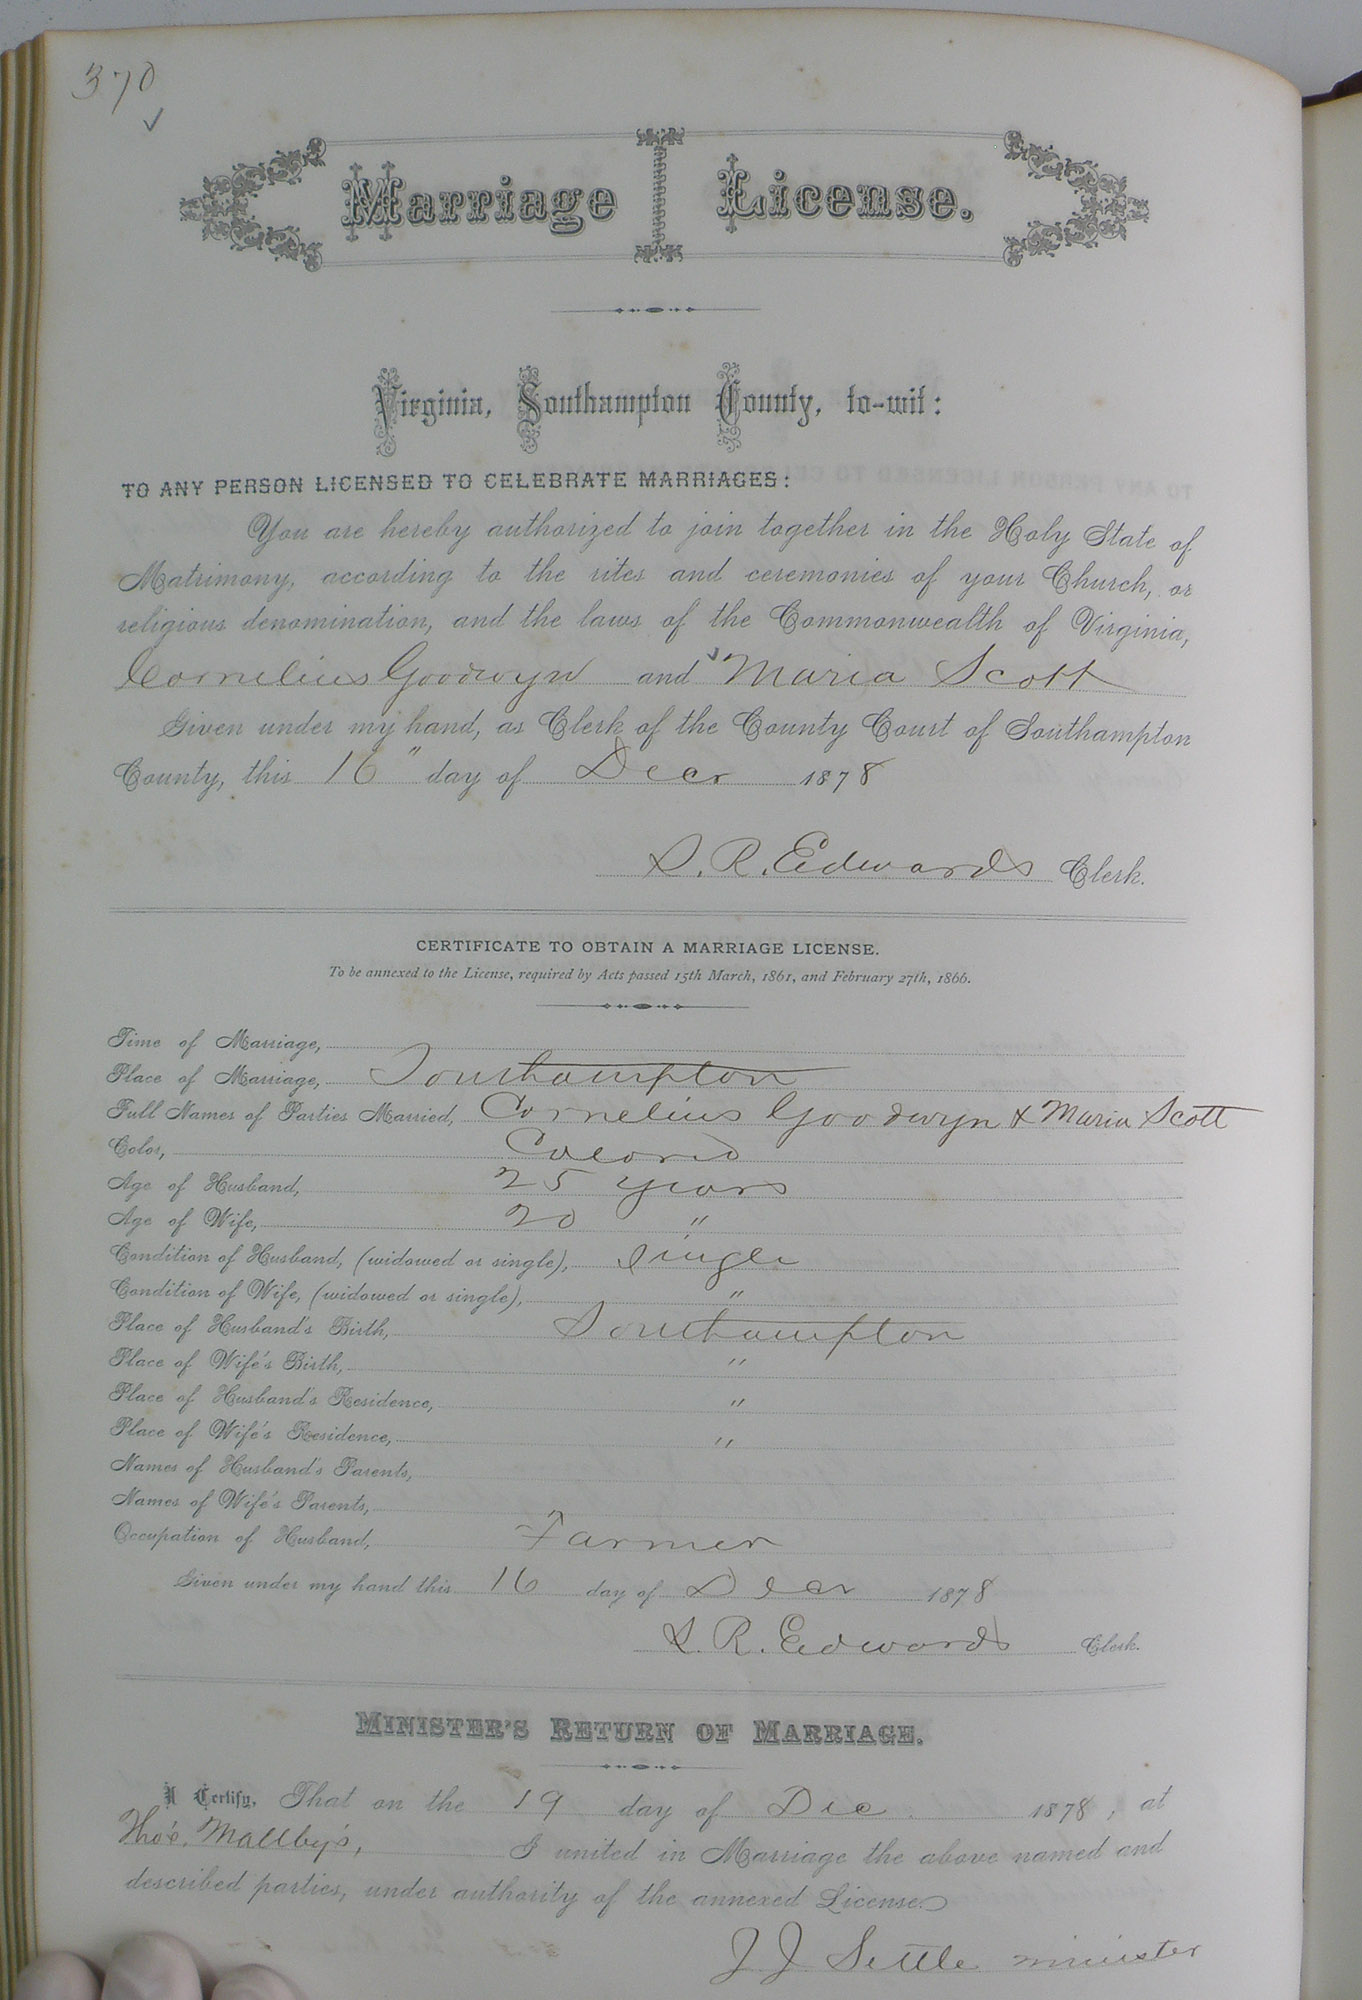 370
Marriage License.
Virginia, Southampton County, to-wit:
TO ANY PERSON LICENSED TO CELEBRATE MARRIAGES:
You are hereby authorized to join together in the Holy State of
Matrimony, according to the rites and ceremonies of your Church, or
religious denomination, and the laws of the Commonwealth of Virginia,
Cornelius Goodwyn and Maria Scott
Given under my hand, as Clerk of the County Court of Southampton
County, this 16" day of Decr 1878
S. R. Edwards Clerk.
CERTIFICATE TO OBTAIN A MARRIAGE LICENSE.
To be annexed to the License, required by Acts passed 15th March, 1861, and February 27th, 1866.
Time of Marriage,
Place of Marriage, Southampton
Full Names of Parties Married, Cornelius Goodwyn & Maria Scott
Color, Colored
Age of Husband, 25 years
Age of Wife, 20 "
Condition of Husband, (widowed or single), single
Condition of Wife, (widowed or single), "
Place of Husband's Birth, Southampton
Place of Wife's Birth, "
Place of Husband's Residence, "
Place of Wife's Residence, "
Names of Husband's Parents,
Names of Wife's Parents,
Occupation of Husband, Farmer
Given under my hand this 16 day of Decr 1878
S. R. Edwards Clerk.
MINISTER'S RETURN OF MARRIAGE.
I Certify, That on the 19 day of Dec. 1878, at
Tho's. Mallby's, I united in Marriage the above named and
described parties, under authority of the annexed License.
J J Settle minister